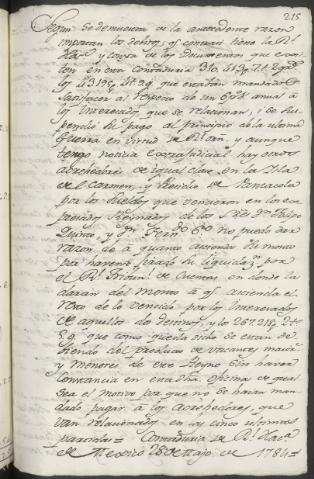 215
Segun se demuestra de la antecedente razon
importan los debitos, qe. contra si tiene la Rl.
Hazda. y consta de los Documentos que existen
en esta Contaduria 310.413 ps.
los 43.195 ps. que estan mandados
satisfacer al respecto de un 6 p% anual a
los Interesados que se relacionan, y se suspendio
el pago al principio de la ultima
Guerra en virtud de Rl. orn. y aunque
tengo noticia extrajudicial hay otros
acrehedores de igual clase en la Isla
del Carmen, y Precidio de Panzacola
por los sueldos que vencieron en los expresados
Reynados de los Sres. Dn. Felipe
Quinto, y Dn. Fernando 6o. no puedo dar
razon de a quanto ascienden
por haverse pasado su liquidon. por
el Rl. Tribunl. de Cuentas, en donde la
daran del monto a qe. asciende el
resto de lo vencido por los Interesados
de aquellos destinos, y los 26
que como queda dicho se estan deviendo
del producto de vacantes mayores
y menores de este Reyno sin haver
constancia en esta dha. oficina de qual
sea el motivo por que no se hayan mandado
pagar a los Acrehedores, que
van relacionados en las cinco ultimas
partidas = Contaduria de Rl. Hazda.
de Mexico 28 de Mayo de 1784 =